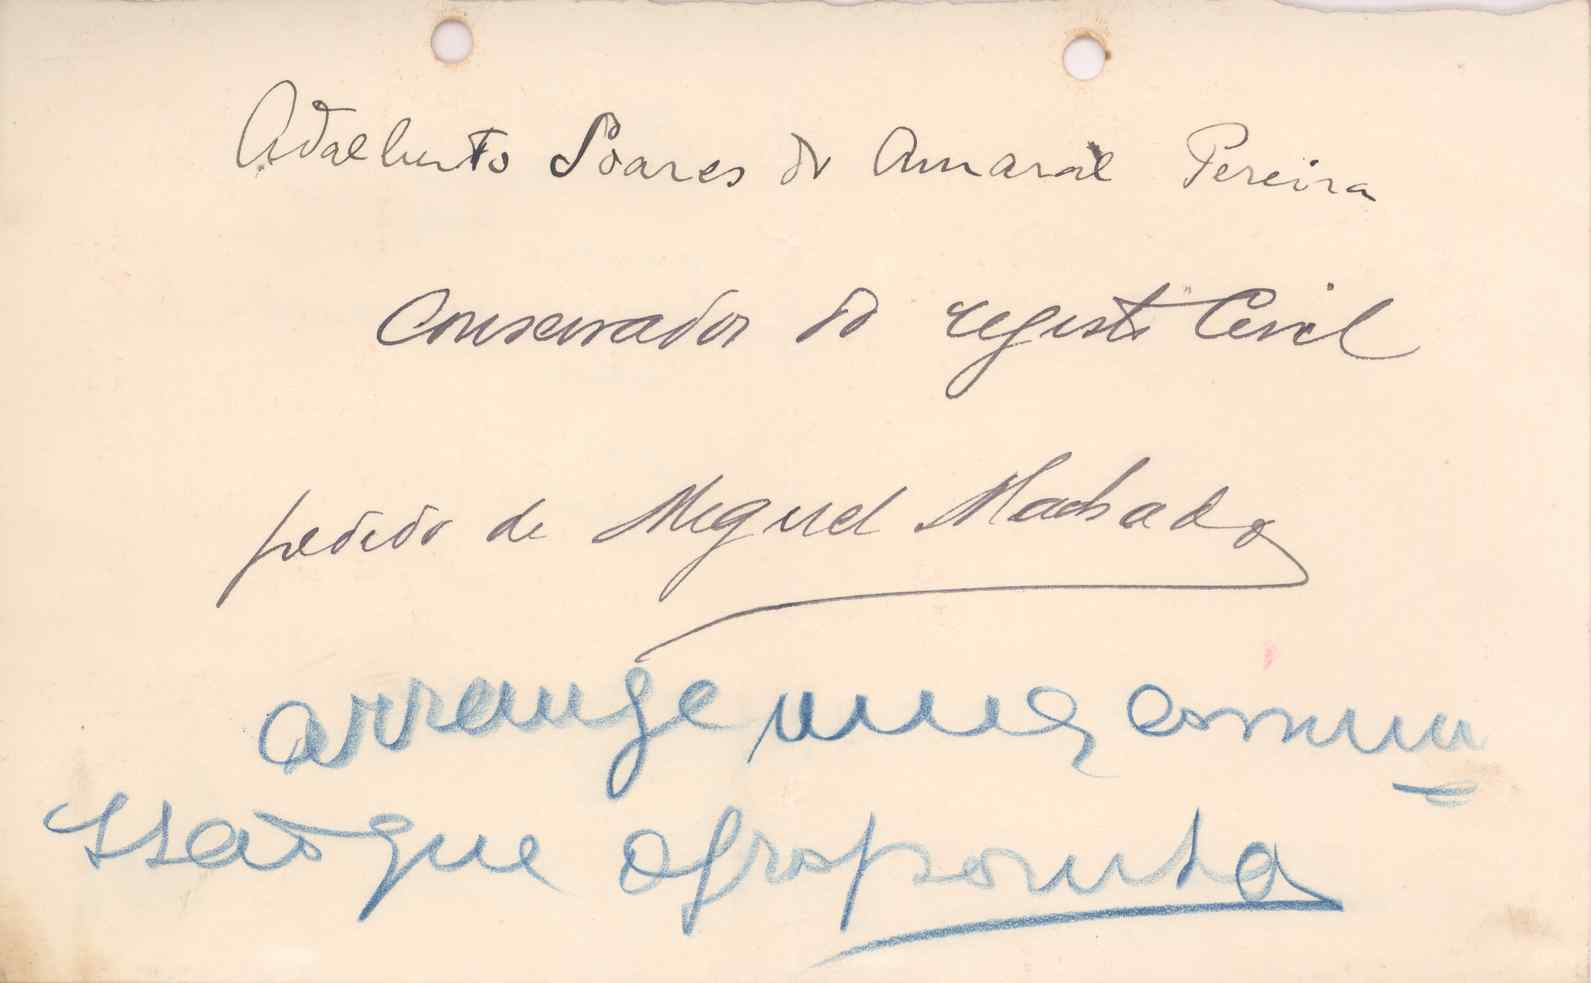 Adalberto Soares do Amaral Pereira
Conservador do registo Civil
pedido de Miguel Machado
arrange uma comm
issão que o proponha